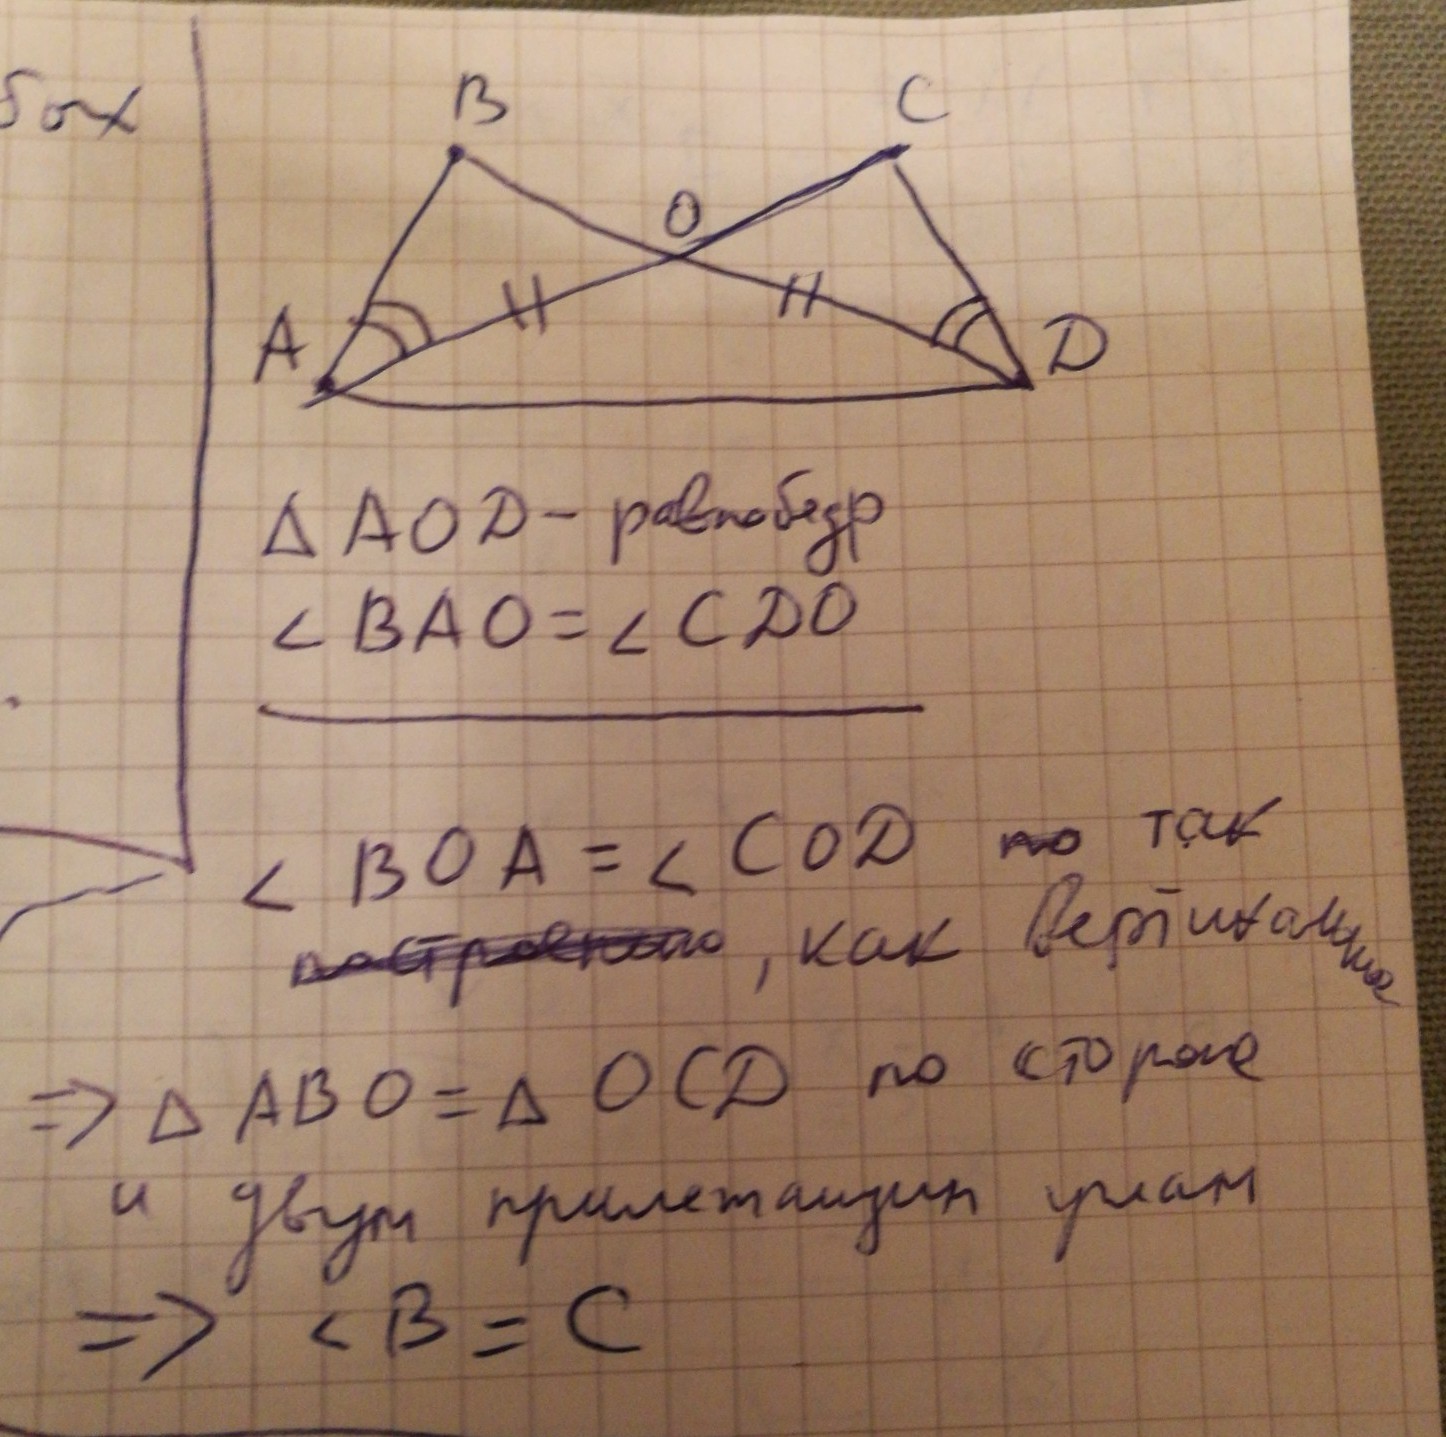 бох
B
C
O
A
D
Δ AOD - равнобедр
< BAO = < CDO
< BOA = < COD по так
построению, как вертикальные
=> Δ ABO = Δ OCD по стороне
и двум прилежащим углам
=> < B = C